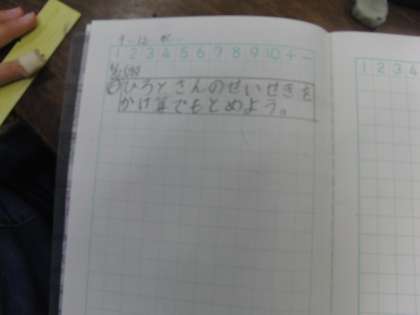 1 2 3 4 5 6 7 8 9 10 + -
ひろとさんのせいせきを
かけ算でもとめよう。
1 2 3 4